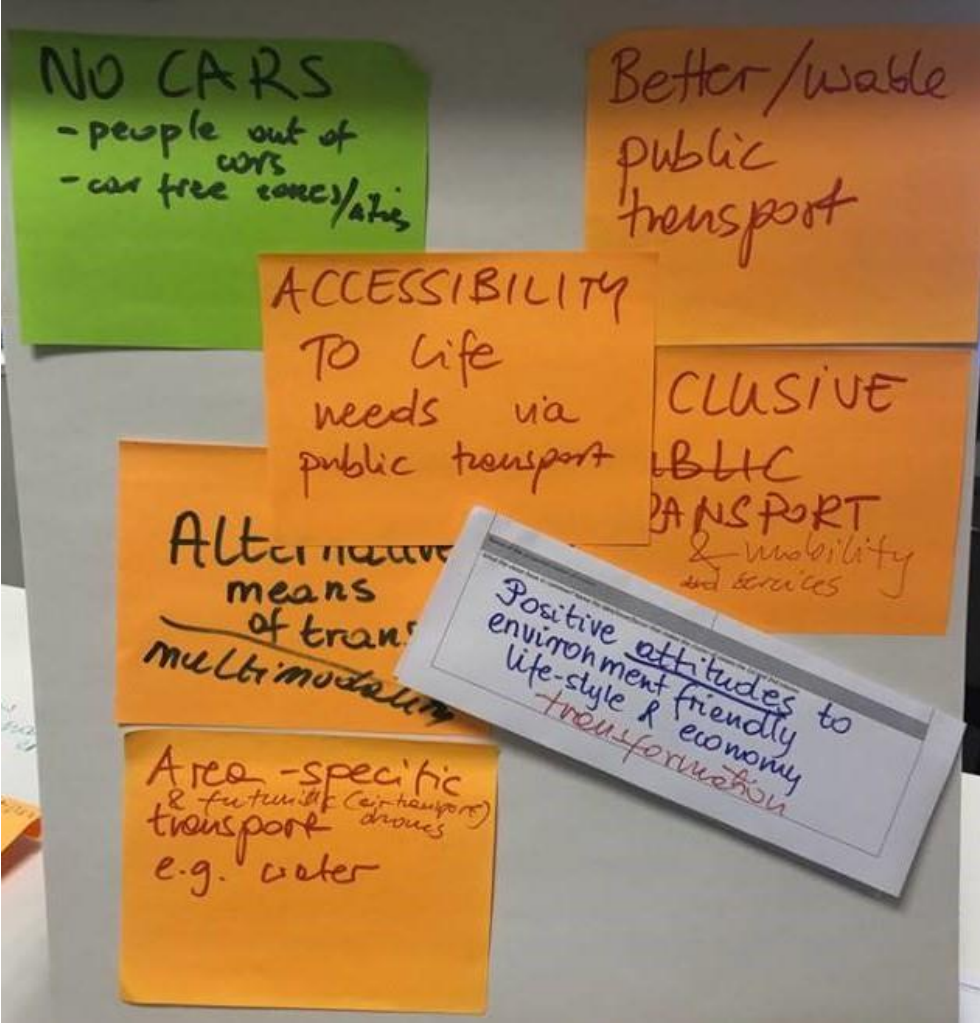 NO CARS
- people out of
cars
- car free zones/cities
Better/usable
public
transport
ACCESSIBILITY
TO life
needs via
public transport
CLUSIVE
BLIC
RANSPORT
& mobility
and services
Alternative
means
of trans
multimodality
Positive attitudes to
environment friendly
life-style & economy
transformation
Area-specific
& futuristic (air transport)
drones
transport
e.g. water